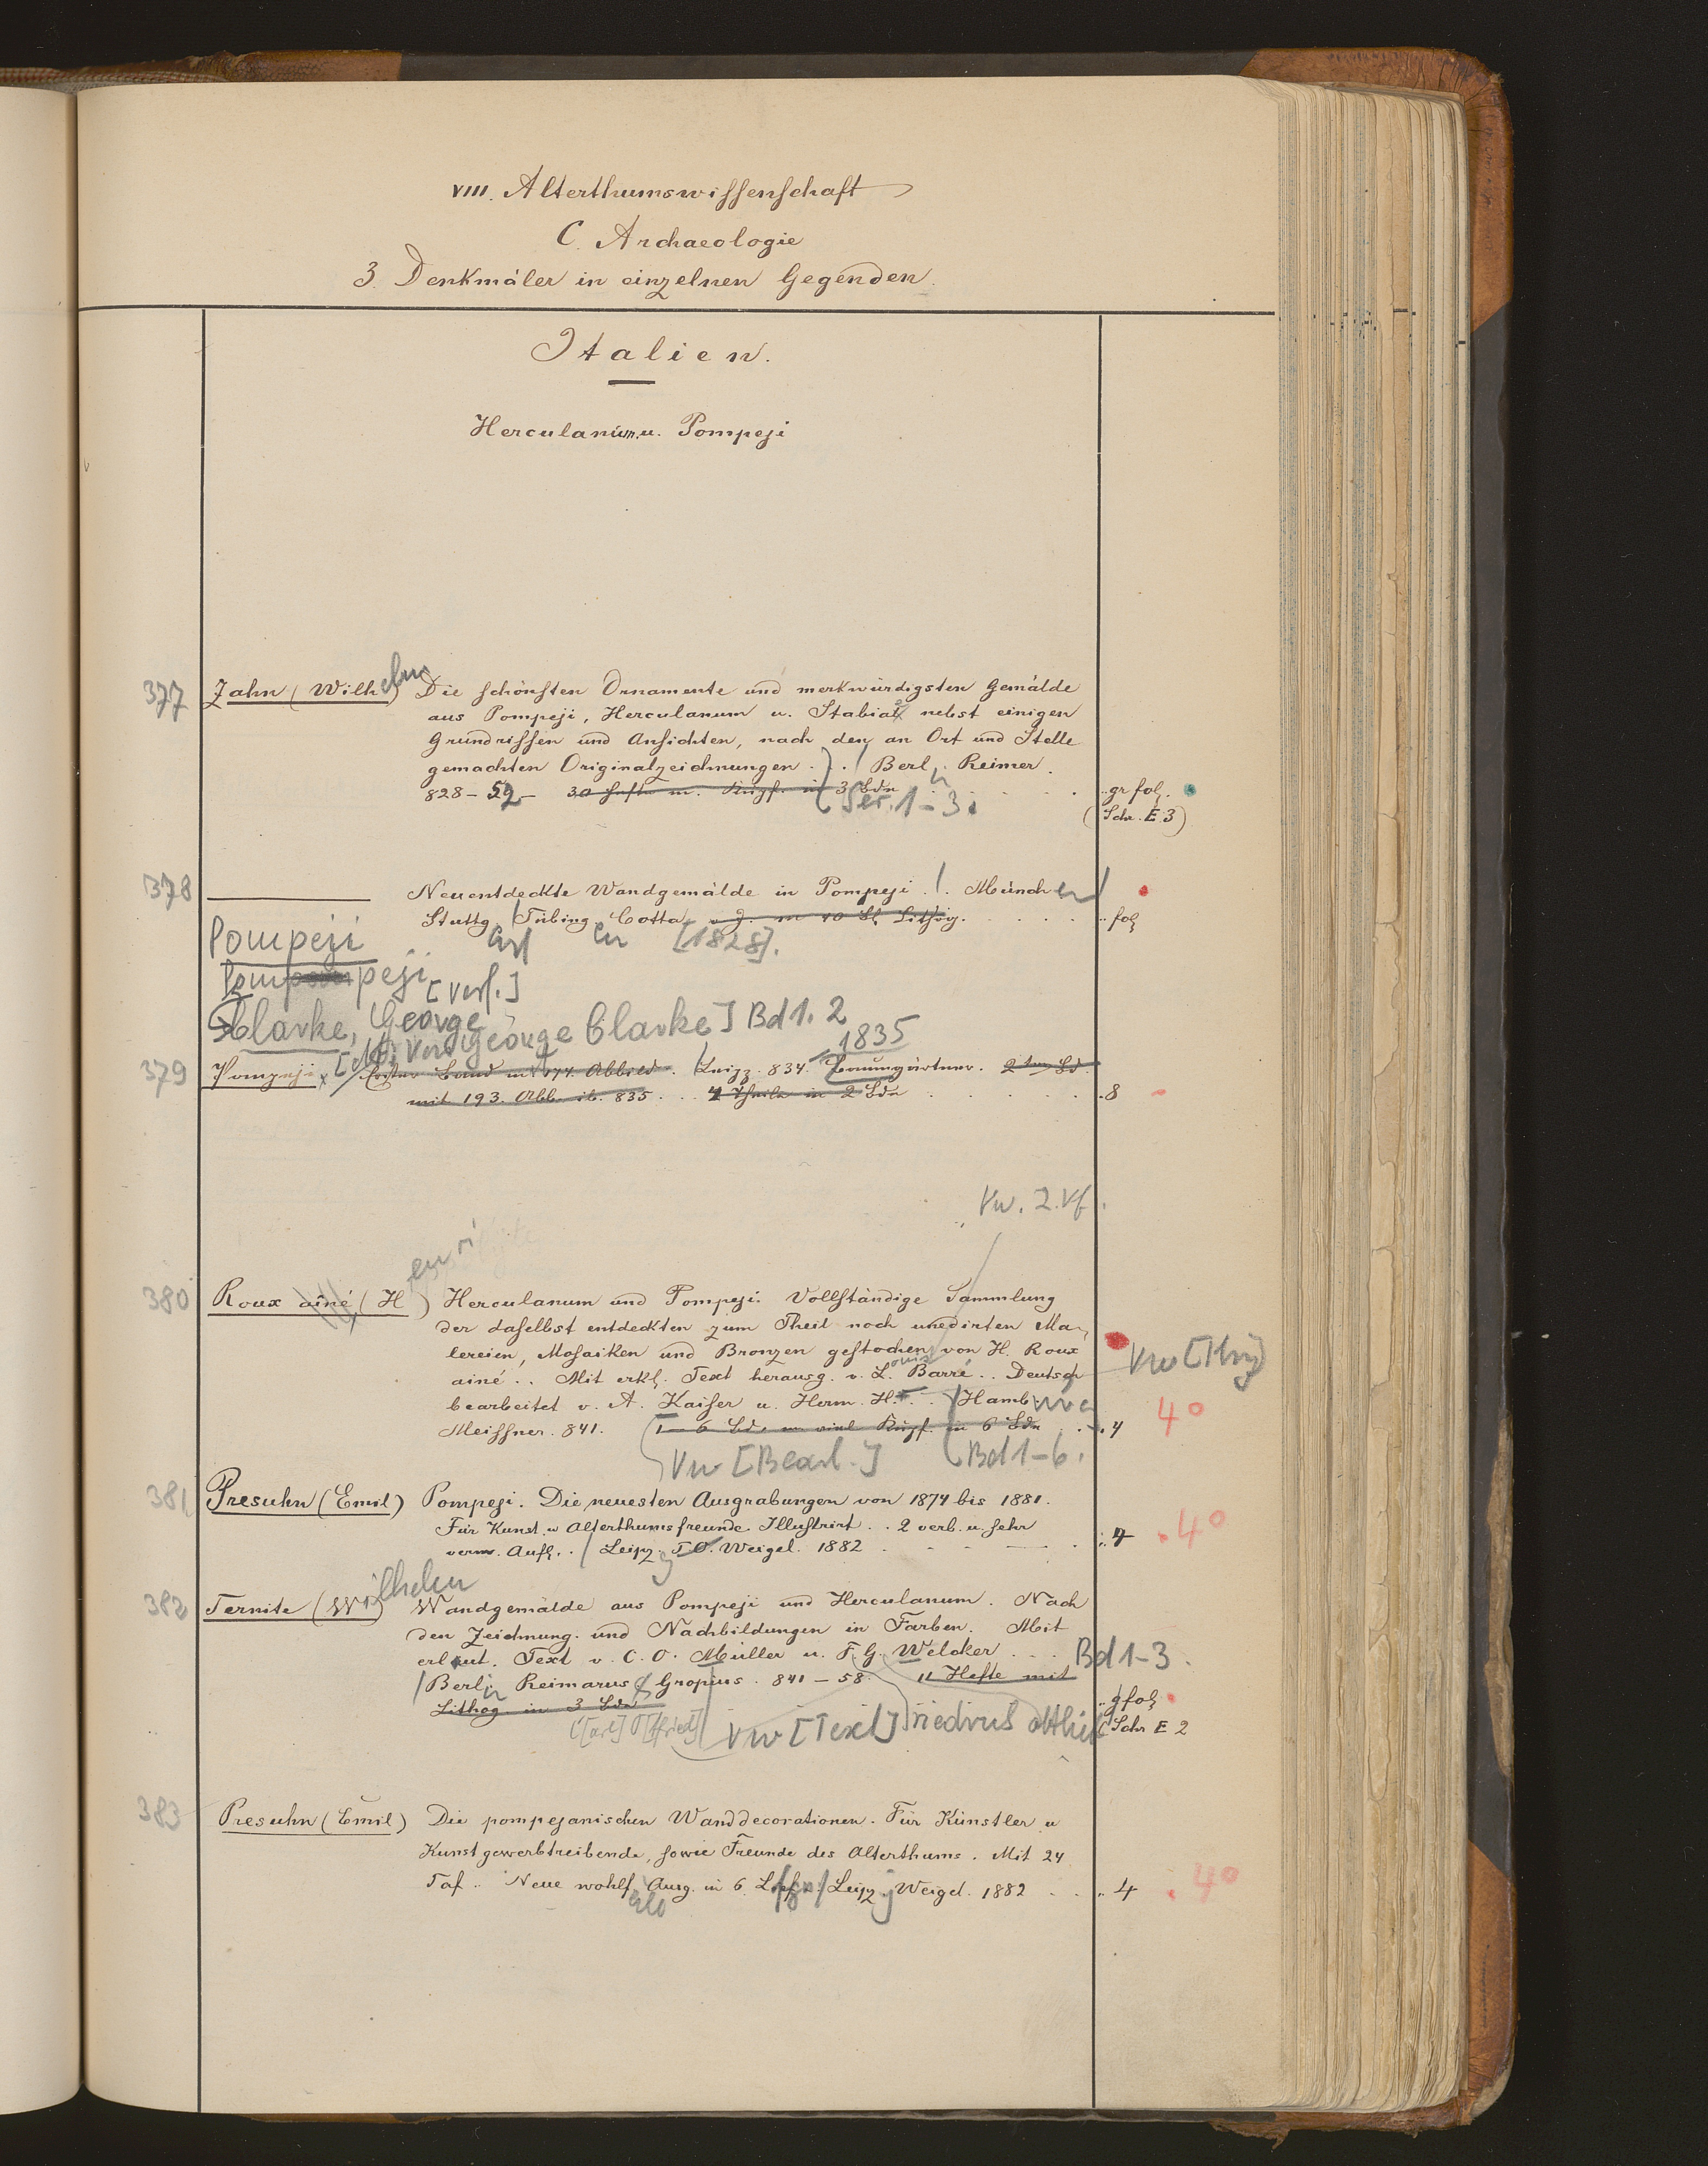 VIII. Alterthumswissenschaft
C. Archaeologie
3. Denkmäler in einzelnen Gegenden.
Italien.
Herculanum u. Pompeji
377 Zahn (Wilhelm) Die schönsten Ornamente und merkwürdigsten Gemälde
aus Pompeji, Herculanum u. Stabiae nebst einigen
Grundrissen und Ansichten, nach den an Ort und Stelle
gemachten Originalzeichnungen . . / Berlin Reimer.
828 – 59 – 30 Hefte m. Kupf. in 3 Bdn gr fol.
Ser. 1–3. (Schr. E 3)
378 Neuentdeckte Wandgemälde in Pompeji . / . München /
Stuttg. / Tübing Cotta o. J. m 40 Bl Lithog. fol
art en [1828].
Pompeji
Pompeji
[Verf.]
Clarke, George
George Clarke] Bd 1. 2
1835
379 Pompeji Erster Band mit 174 Abbild. / Leipz. 834. Baumgärtner. 2ter Bd.
mit 193. Abb. ib. 835 . . 4 Theile in 2 Bdn 8
Vw. z. Vf.
enri
380 Roux aîné (H ) Herculanum und Pompeji. Vollständige Sammlung
der daselbst entdeckten zum Theil noch unedirten Ma-
lereien, Mosaiken und Bronzen gestochen von H. Roux
ainé . . Mit erkl. Text herausg. v. Louis Barré . . Deutsch
Vw [Hrsg]
bearbeitet v. A. Kaiser u. Herm. H. . . / Hamburg
Meissner. 841. 1 – 6 Bd. m. viel Kupf. in 6 Bdn 4 4°
Vw [Bearb.] Bd 1–6.
381 Presuhn (Emil) Pompeji. Die neuesten Ausgrabungen von 1874 bis 1881.
Für Kunst u Alterthumsfreunde Illustrirt . . 2 verb. u. sehr
verm. Aufl. . / Leipzig T. O. Weigel. 1882 4 4°
382 Ternite (Wilhelm) Wandgemälde aus Pompeji und Herculanum. Nach
den Zeichnung. und Nachbildungen in Farben. Mit
erläut. Text v. C. O. Müller u. F. G. Welcker . . . Bd 1–3.
/ Berlin Reimarus Gropius. 841 – 58. 11 Hefte mit
Lithog in 3 Bdn gfol
C[arl] O[tfried] Vw [Text] Friedrich ottlieb (Schr E 2
383 Presuhn (Emil) Die pompejanischen Wanddecorationen. Für Künstler u
Kunstgewerbtreibende, sowie Freunde des Alterthums. Mit 24
Taf . . Neue wohlf Ausg. in 6 Leipzig Weigel. 1882 4 4°